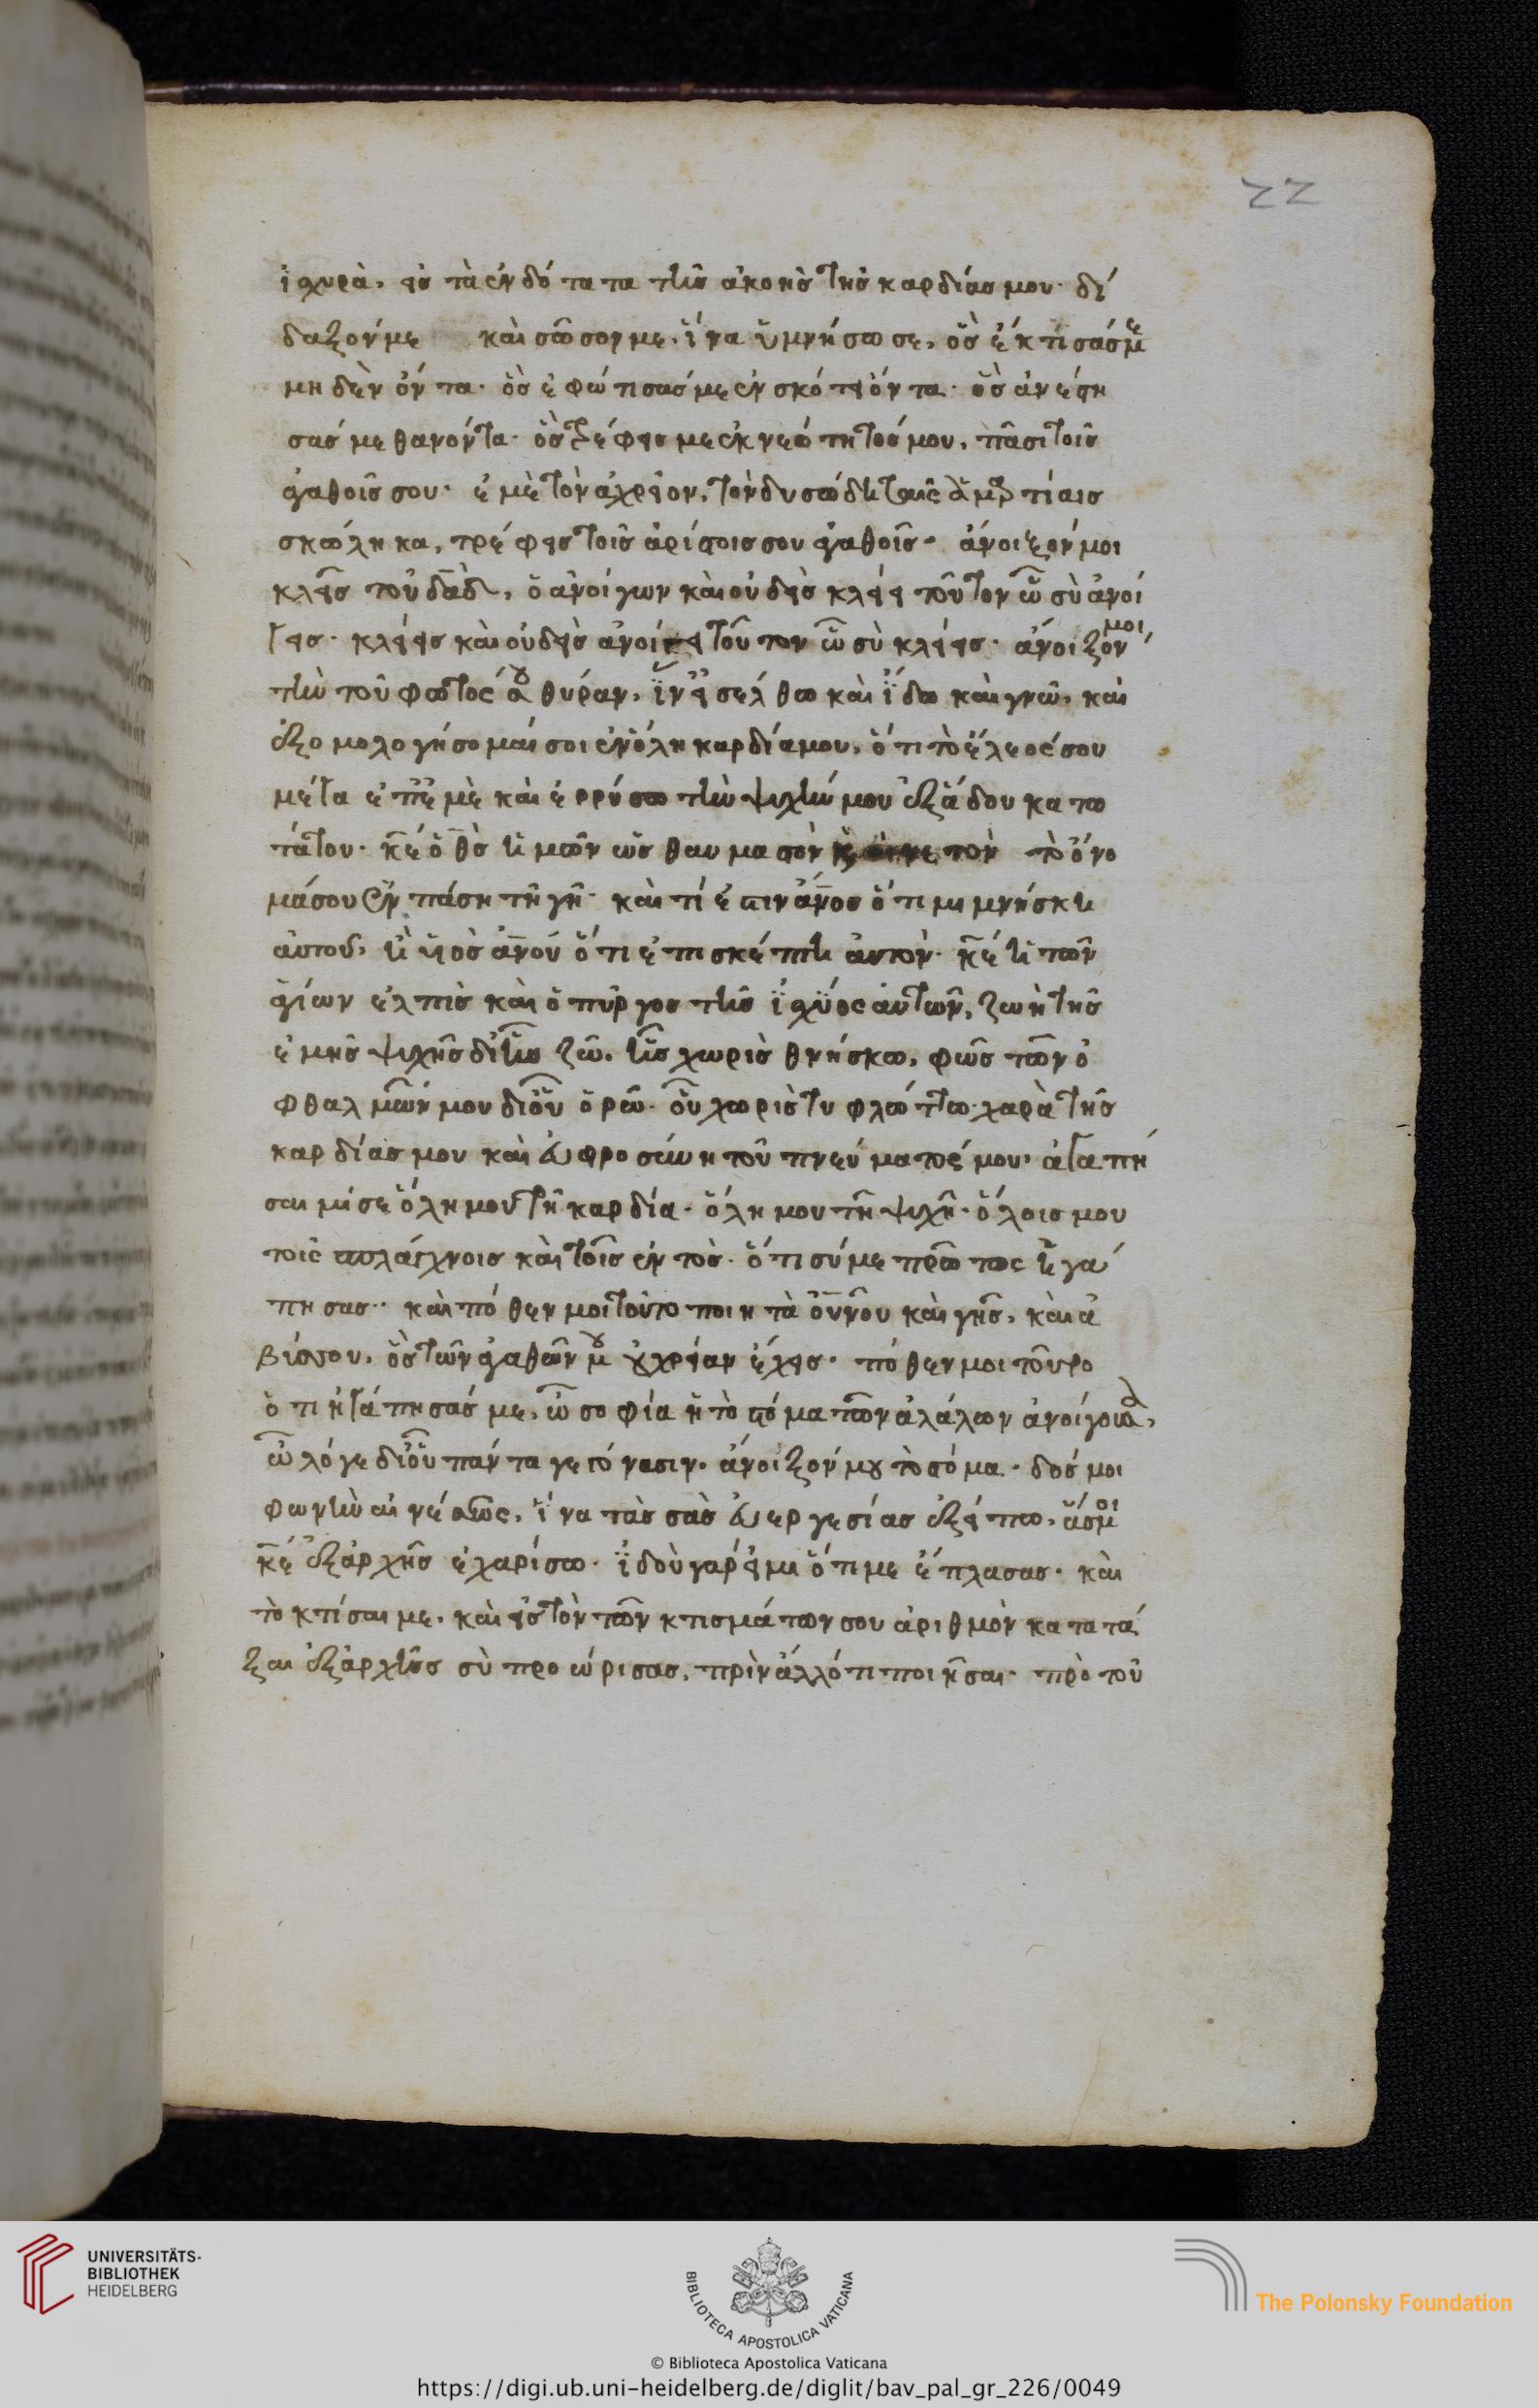 22
ἰσχυρὰ, εἰς τὰ ἐνδότατα τῆς ἀκοῆς τῆς καρδίας μου· δί
δαξόν με καὶ σῶσον με, ἵνα ὑμνήσω σε, ὃς ἔκτισάς με
μηδὲν ὄντα· ὃς ἐφώτισάς με ἐν σκότει ὄντα· ὃς ἀνέστη
σάς με θανόντα· ὃς τρέφεις με ἐκ νεότητός μου, πᾶσι τοῖς
ἀγαθοῖς σου· ἐμὲ τὸν ἀχρεῖον, τὸν δυσώδη ταῖς ἁμαρτίαις
σκώληκα, τρέφεις τοῖς ἀρίστοις σου ἀγαθοῖς· ἄνοιξόν μοι
κλεῖς τοῦ δα̅δ, ὁ ἀνοίγων καὶ οὐδεὶς κλείει τοῦτον ὧ σὺ ἀνοί
γεις· κλείεις καὶ οὐδεὶς ἀνοίγει τοῦτον ὧ σὺ κλείεις· ἄνοιξόν μοι
τὴν τοῦ φωτός σου θύραν, ἵν' εἰσέλθω καὶ ἴδω καὶ γνῶ, καὶ
ἐξομολογήσομαί σοι ἐν ὅλη καρδία μου, ὅτι τὸ ἔλεός σου
μέγα ἐπ' ἐμὲ καὶ ἐρρύσω τὴν ψυχήν μου ἐξ ἅδου κατω
τάτου· κ̅ε ὁ θ̅ς ἡμῶν ὡς θαυμαστὸν τὸ ὄνο
μά σου ἐν πάση τῆ γῆ· καὶ τί ἐστιν ἄν̅ος ὅτι μιμνήσκη
αὐτοῦ, ἢ υἱὸς ἀν̅ου ὅτι ἐπισκέπτη αὐτὸν· κ̅ε ἡ τῶν
ἁγίων ἐλπὶς καὶ ὁ πύργος τῆς ἰσχύος αὐτῶν, ζωὴ τῆς
ἐμῆς ψυχῆς δι' ἧς ζῶ, ἧς χωρὶς θνήσκω, φῶς τῶν ὀ
φθαλμῶν μου δι' οὗ ὁρῶ· οὗ χωρὶς τυφλώττω· χαρὰ τῆς
καρδίας μου καὶ εὐφροσύνη τοῦ πνεύματός μου, ἀγαπή
σαιμί σε ὅλη μου τῆ καρδία· ὅλη μου τῆ ψυχῆ· ὅλοις μου
τοῖς σπλάγχνοις καὶ τοῖς ἐντὸς· ὅτι σύ με πρῶτος ἠγά
πησας· καὶ πόθεν μοι τοῦτο ποιητὰ οὐν̅ου καὶ γῆς, καὶ ἀ
βύσσου, ὃς τῶν ἀγαθῶν μου οὐ χρείαν ἔχεις· πόθεν μοι τοῦτο
ὅτι ἠγάπησάς με, ὦ σοφία ἣ τὸ στόμα τῶν ἀλάλων ἀνοίγουσα,
ὦ λόγε δι' οὗ πάντα γεγόνασιν, ἄνοιξόν μου τὸ στόμα· δός μοι
φωνὴν αἰνέσεως, ἵνα τὰς σὰς εὐεργεσίας ἐξείπω, ἅς μοι
κ̅ε ἐξ ἀρχῆς ἐχαρίσω· ἰδοὺ γάρ εἰμι ὅτι με ἔπλασας· καὶ
τὸ κτίσαι με, καὶ εἰς τὸν τῶν κτισμάτων σου ἀριθμὸν κατατά
ξαι ἐξ ἀρχῆς σὺ προώρισας, πρὶν ἄλλό τι ποιῆσαι· πρὸ τοῦ
UNIVERSITÄTS-
BIBLIOTHEK
HEIDELBERG
BIBLIOTECA APOSTOLICA VATICANA
The Polonsky Foundation
© Biblioteca Apostolica Vaticana
https://digi.ub.uni-heidelberg.de/diglit/bav_pal_gr_226/0049